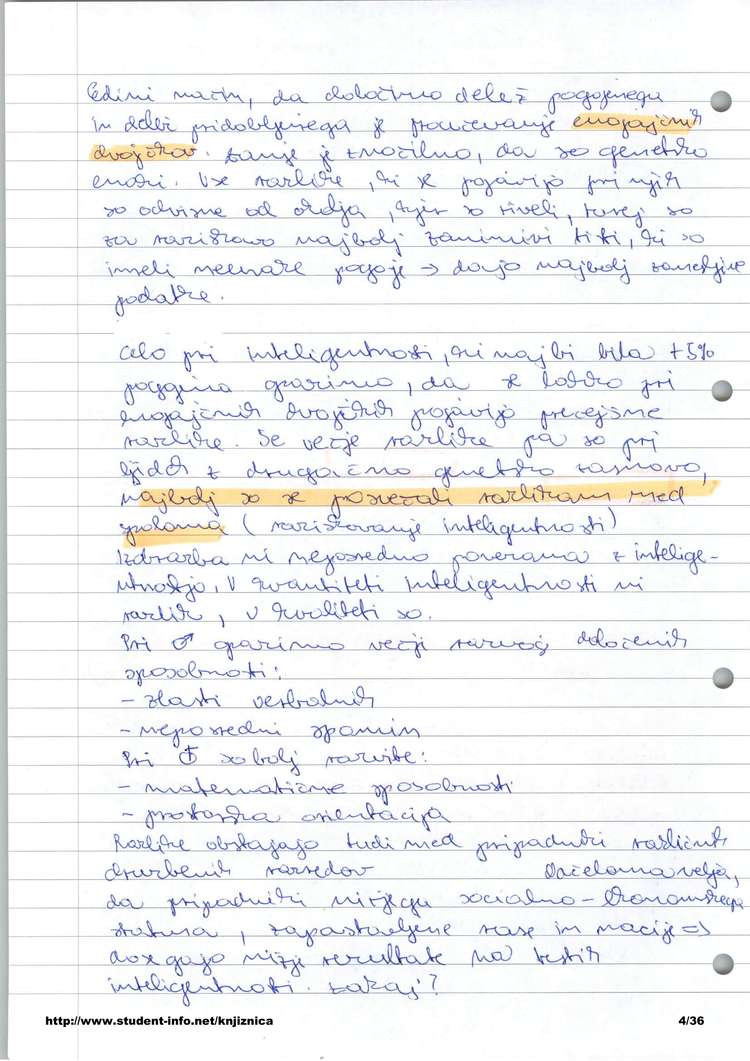 Edini način, da določimo delež pogojenega
in delež pridobljenega je proučevanje enojajčnih
dvojčkov. Zanje je značilno, da so genetsko
enaki. Vse razlike, ki se pojavijo pri njih
so odvisne od okolja, kjer so živeli, torej so
za raziskavo najbolj zanimivi tisti, ki so
imeli neenake pogoje → dajo najbolj zanesljive
podatke.
Celo pri inteligentnosti, ki naj bi bila 75%
pogojena opazimo, da se lahko pri
enojajčnih dvojčkih pojavijo precejšne
razlike. Še večje razlike pa so pri
ljudeh z drugačno genetsko zasnovo,
najbolj so se posvečali razlikam med
spoloma (raziskovanje inteligentnosti)
Izobrazba ni neposredno povezana z intelige-
ntnostjo, V kvantiteti inteligentnosti ni
razlik, v kvaliteti so.
Pri ♂ opazimo večji razvoj določenih
sposobnosti:
- zlasti verbalnih
- neposredni spomin
Pri ♀ so bolj razvite:
- matematične sposobnosti
- prostorska orientacija
Razlike obstajajo tudi med pripadniki različnih
družbenih razredov Načeloma velja,
da pripadniki nižjega socialno-ekonomskega
statusa, zapostavljene rase in nacije ⇒
dosegajo nižje rezultate na testih
inteligentnosti. Zakaj?
http://www.student-info.net/knjiznica 4/36